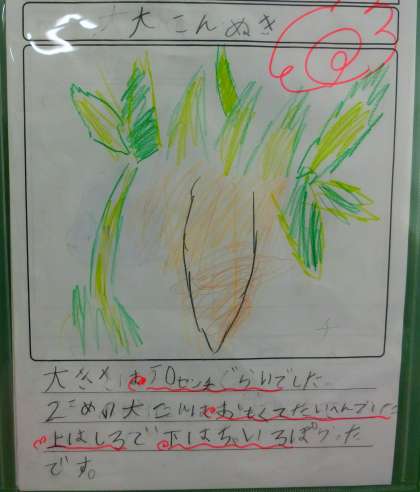 大こんぬき
大きさは50センチぐらいでした
2こめの大こんはおもくてたいへんでした
上はしろで下はちゃいろぽかった
です。